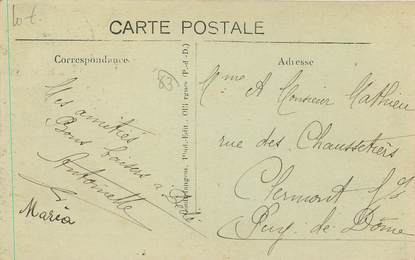 lot.
CARTE POSTALE
Correspondance
Adresse
83
Mes amitiés
Bons baisers à Dédé
Antoinette
Maria
Phot.-Edit., Olliergues (P.-d.-D.)
Mme & Monsieur Mathieu
rue des Chaussetiers
Clermont Fd
Puy-de-Dôme